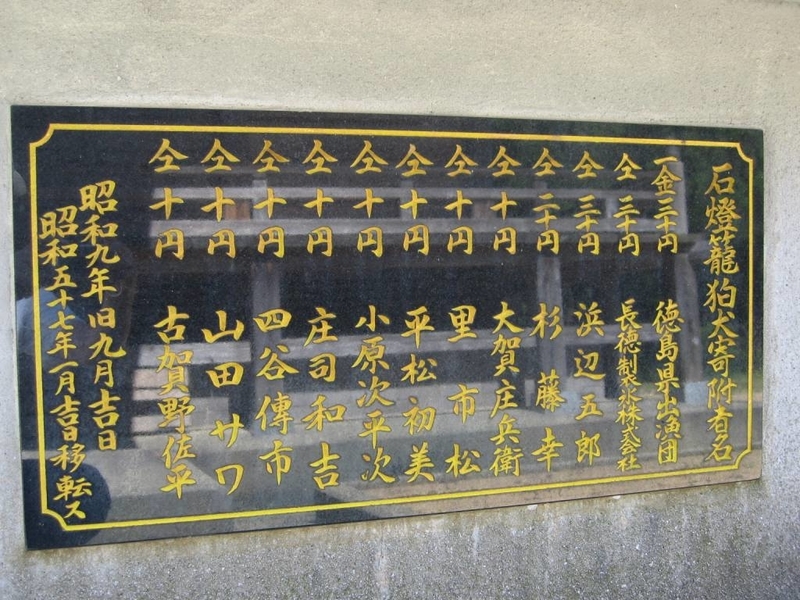 石燈籠狛犬寄附者名
一金三十円 徳島県出漁団
仝 三十円 長徳製氷株式会社
仝 三十円 浜辺五郎
仝 二十円 杉藤幸
仝 十円 大賀庄兵衛
仝 十円 里市松
仝 十円 平松初美
仝 十円 小原次平次
仝 十円 庄司和吉
仝 十円 四谷傳市
仝 十円 山田サワ
仝 十円 古賀野佐平
昭和九年旧九月吉日
昭和五十七年一月吉日移転ス